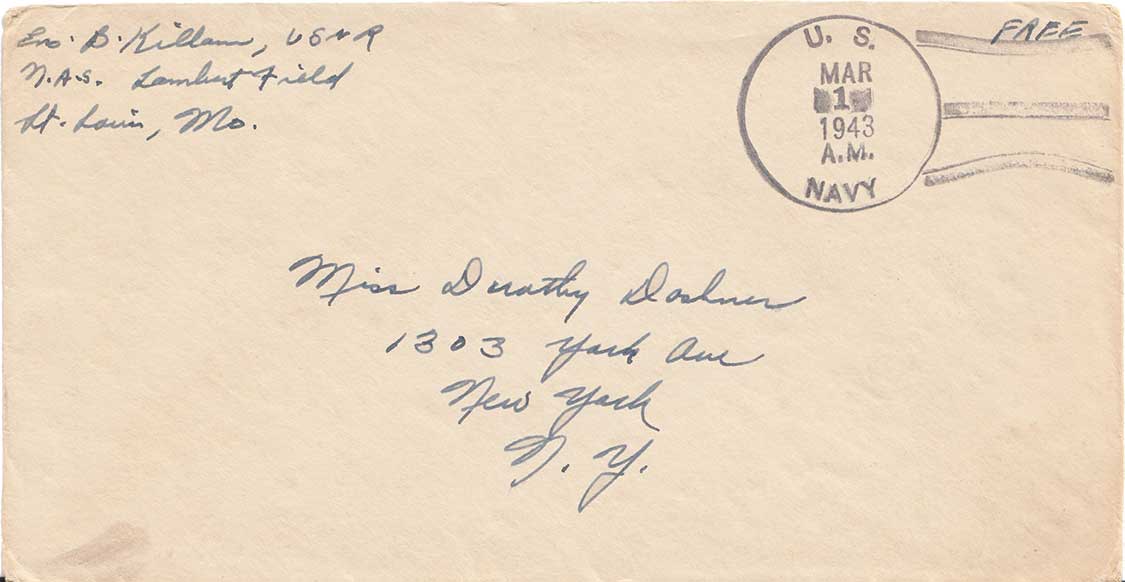 Ens. B. Killam, USNR
N.A.S. Lambert Field
St. Louis, Mo.
U. S.
MAR
1
1943
A.M.
NAVY
FREE
Miss Dorothy Doshner
1303 York Ave
New York
N. Y.